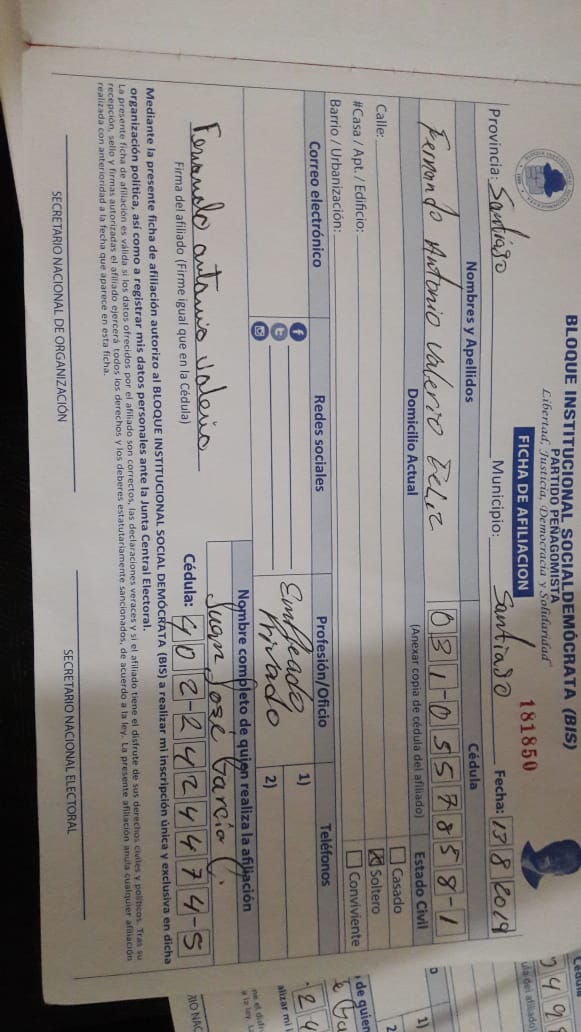 BLOQUE INSTITUCIONAL SOCIALDEMÓCRATA (BIS)
PARTIDO PEÑAGOMISTA
Libertad, Justicia, Democracia y Solidaridad
FICHA DE AFILIACION
181850
Provincia: Santiago Municipio: Santiago Fecha: 13 8 2019
Nombres y Apellidos Cédula
Fernando Antonio Valerio 031-0557858-1
Domicilio Actual (Anexar copia de cédula del afiliado) Estado Civil
Calle: Casado
#Casa / Apt. / Edificio: Soltero
Barrio / Urbanización: Conviviente
Correo electrónico Redes sociales Profesión/Oficio Teléfonos
Empleado 1)
Privado 2)
Nombre completo de quien realiza la afiliación
Juan José Garcia
Fernando antonio Valerio
Firma del afiliado (Firme igual que en la Cédula) Cédula: 402-2424474-5
Mediante la presente ficha de afiliación autorizo al BLOQUE INSTITUCIONAL SOCIAL DEMÓCRATA (BIS) a realizar mi inscripción única y exclusiva en dicha
organización política, así como a registrar mis datos personales ante la Junta Central Electoral.
La presente ficha de afiliación es válida si los datos ofrecidos por el afiliado son correctos, las declaraciones veraces y si el afiliado tiene el disfrute de sus derechos civiles y políticos. Tras su
recepción, sello y firmas autorizadas el afiliado ejercerá todos los derechos y los deberes estatutariamente sancionados, de acuerdo a la ley. La presente afiliación anula cualquier afiliación
realizada con anterioridad a la fecha que aparece en esta ficha.
SECRETARIO NACIONAL DE ORGANIZACIÓN SECRETARIO NACIONAL ELECTORAL